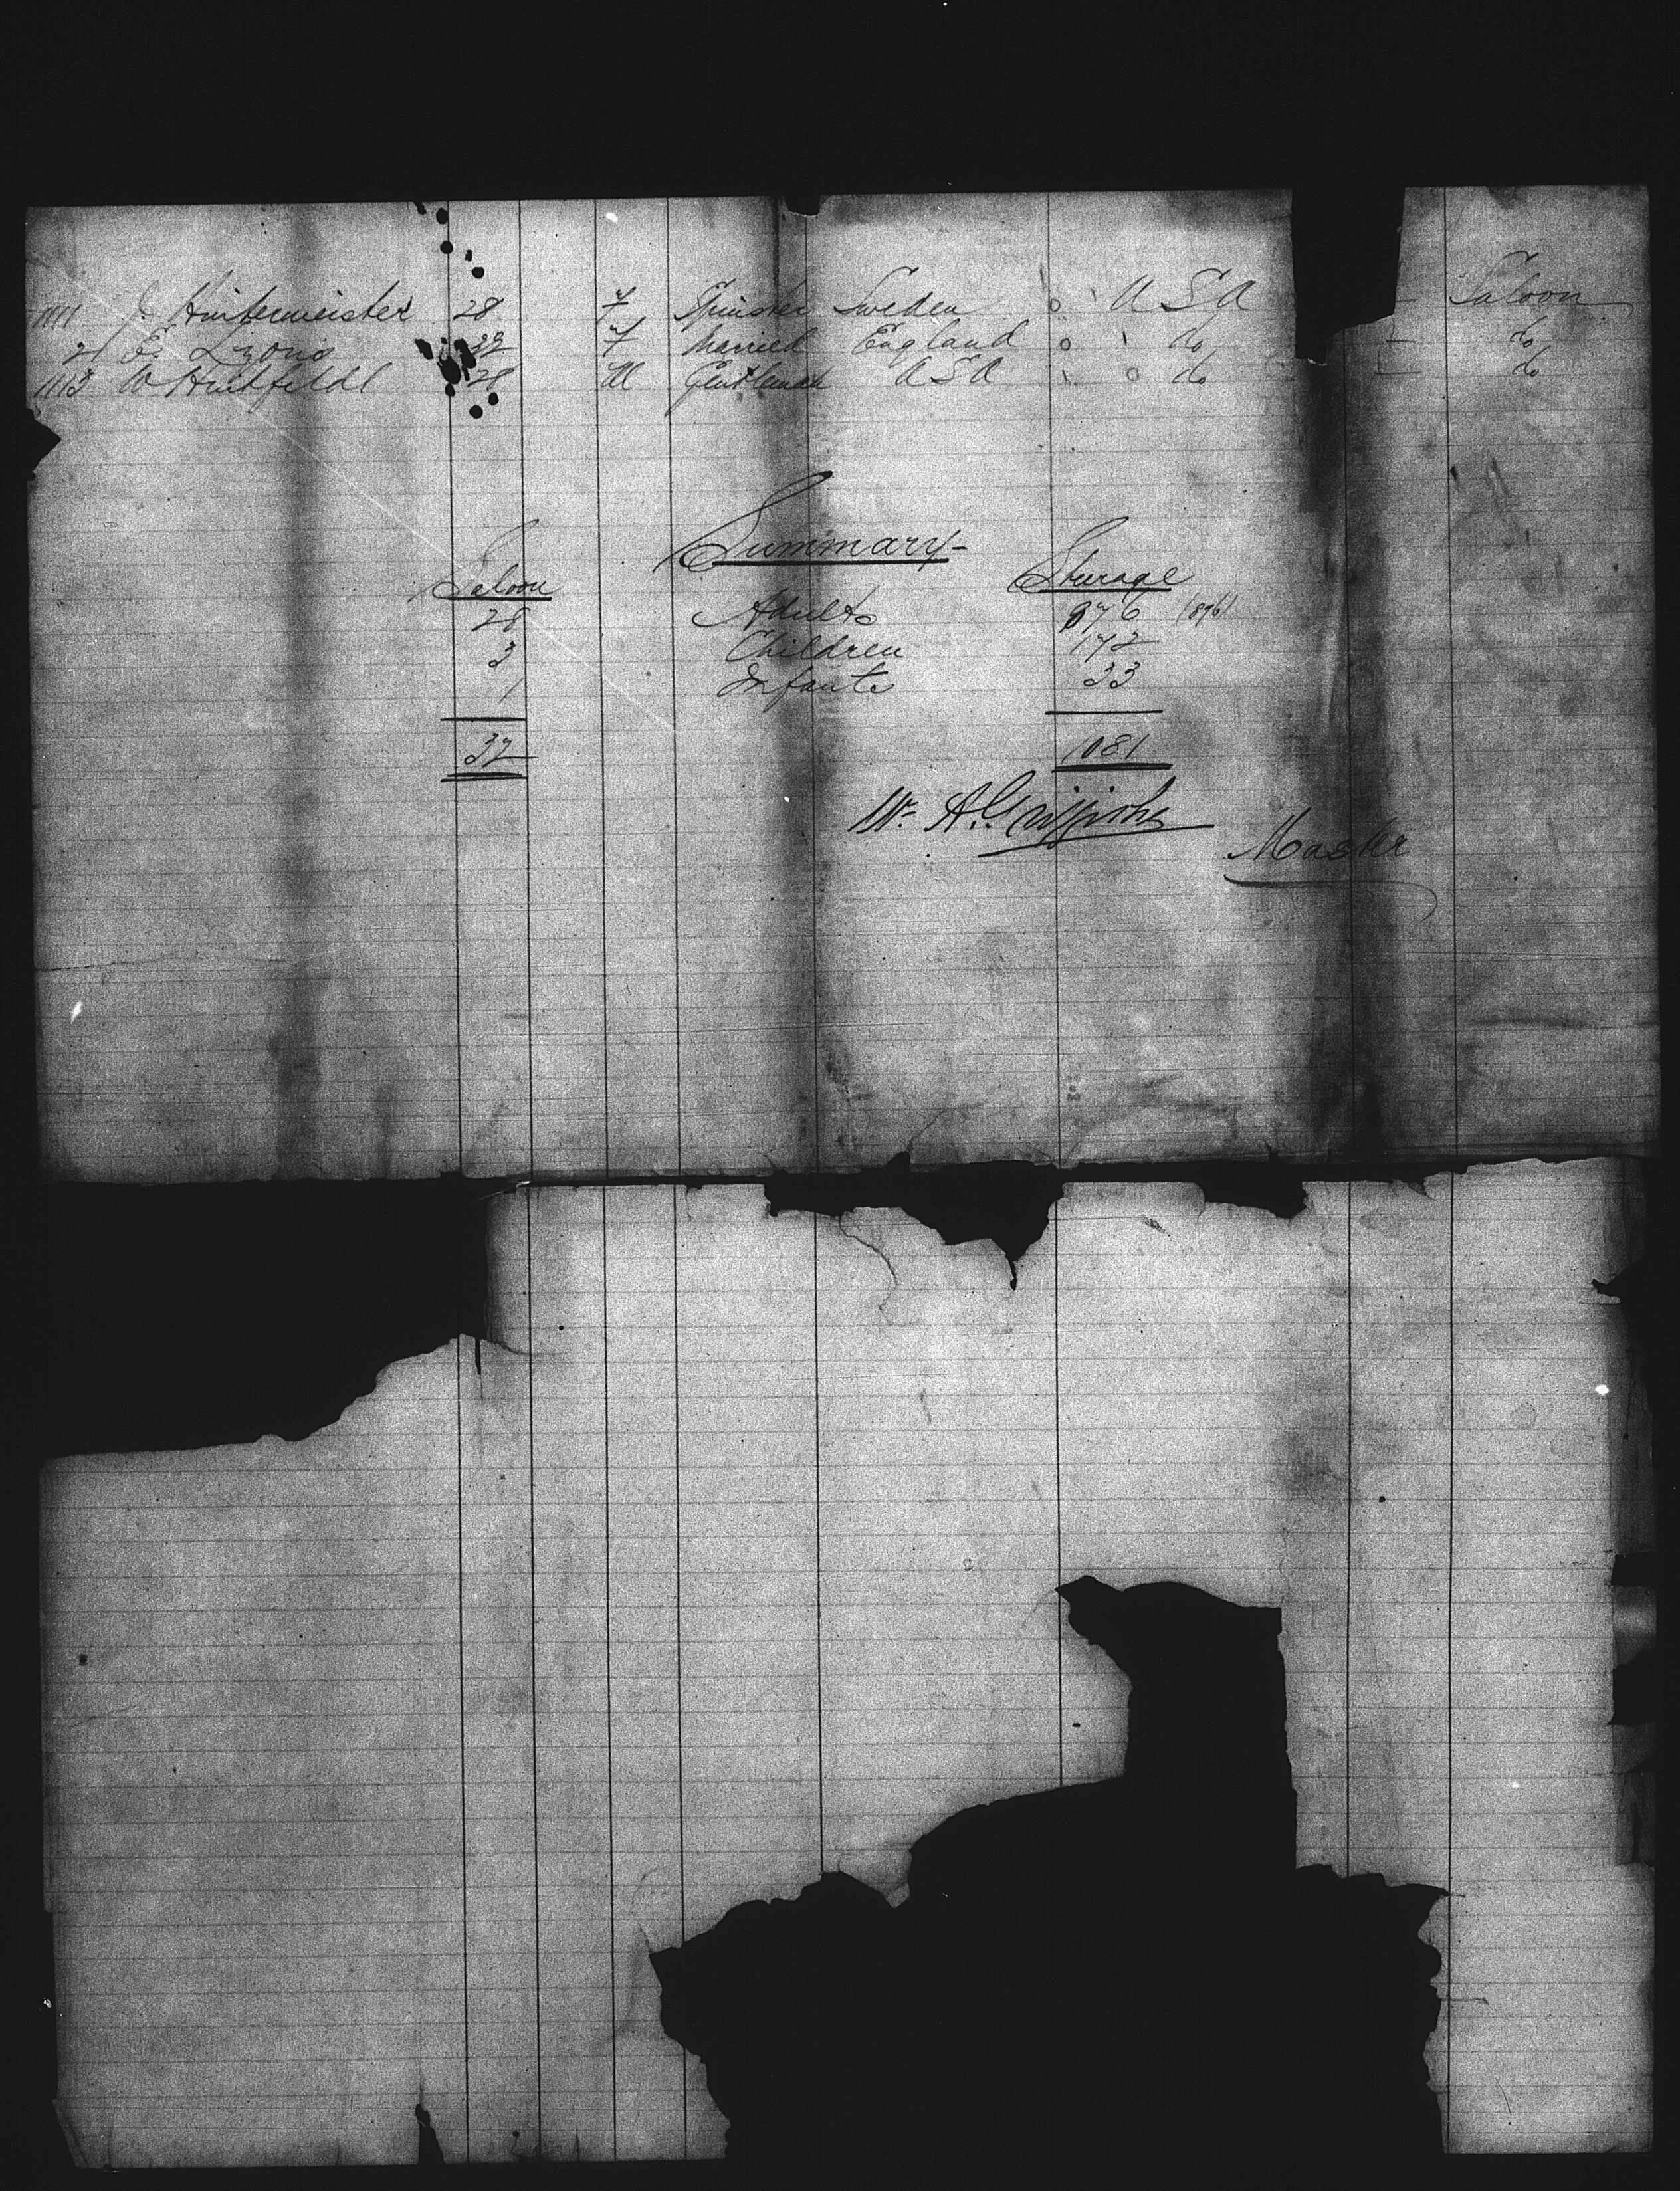 1111 J. Hintermeister 28 F Spinster Sweden o ' U S A — Saloon
2 E. Lyons 32 F Married England o ' do — do
1113 W Hirchfeldt 28 M Gentleman U S A ' o do — do
Summary-
Saloon Steerage
28 Adults 876 (876)
3 Children 172
1 Infants 33
32 1081
W. A. Griffiths
Master